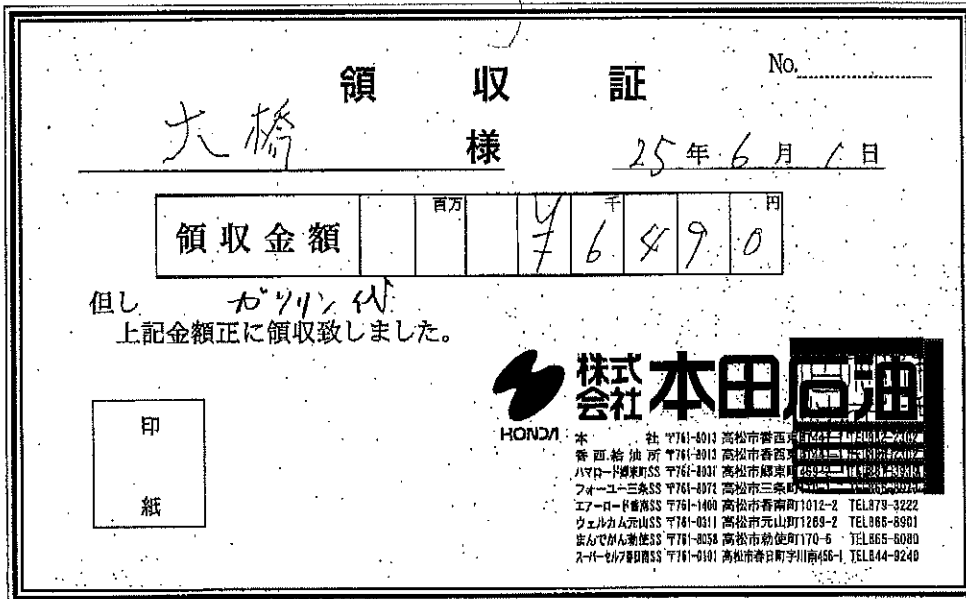 No.
領収証
大橋 様
25年6月1日
領収金額 百万 千 円
¥6490
但し ガソリン代
上記金額正に領収致しました。
印紙
HONDA
株式会社 本田石油
本社 〒761-8013 高松市香西東町
香西給油所 〒761-8013 高松市香西東町
ハマロード郷東町SS 〒761-8031 高松市郷東町
フォーユー三条SS 〒761-8072 高松市三条町
エアーロード香南SS 〒761-1400 高松市香南町1012-2 TEL879-3222
ウェルカム元山SS 〒761-0311 高松市元山町1269-2 TEL865-8901
まんでがん勅使SS 〒761-8058 高松市勅使町170-6 TEL865-6080
スーパーセルフ春日南SS 〒761-0101 高松市春日町字川南456-1 TEL844-9249